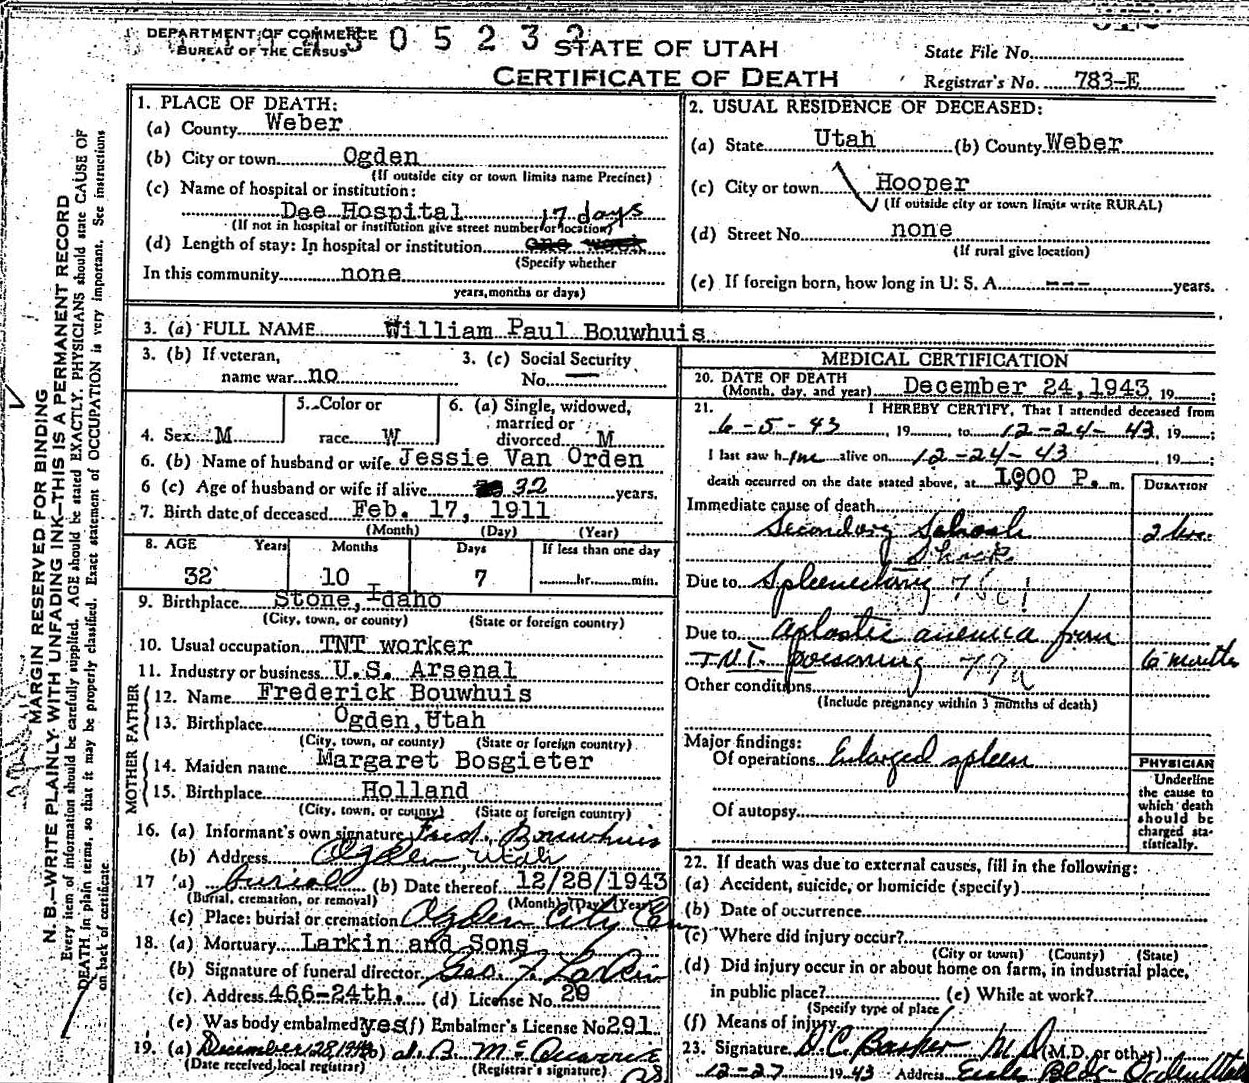 DEPARTMENT OF COMMERCE
BUREAU OF THE CENSUS
305232
STATE OF UTAH
CERTIFICATE OF DEATH
State File No.
Registrar's No. 783-E
MARGIN RESERVED FOR BINDING
N. B.—WRITE PLAINLY WITH UNFADING INK—THIS IS A PERMANENT RECORD
Every item of information should be carefully supplied. AGE should be stated EXACTLY. PHYSICIANS should state CAUSE OF
DEATH in plain terms, so that it may be properly classified. Exact statement of OCCUPATION is very important. See instructions
on back of certificate
1. PLACE OF DEATH:
(a) County Weber
(b) City or town Ogden
(If outside city or town limits name Precinct)
(c) Name of hospital or institution:
Dee Hospital 17 days
(If not in hospital or institution give street number or location)
(d) Length of stay: In hospital or institution one week
(Specify whether
In this community none
years, months or days)
2. USUAL RESIDENCE OF DECEASED:
(a) State Utah (b) County Weber
(c) City or town Hooper
(If outside city or town limits write RURAL)
(d) Street No. none
(If rural give location)
(e) If foreign born, how long in U. S. A. --- years.
3. (a) FULL NAME William Paul Bouwhuis
3. (b) If veteran,
name war no
3. (c) Social Security
No. —
4. Sex M
5. Color or
race W
6. (a) Single, widowed,
married or
divorced M
6. (b) Name of husband or wife Jessie Van Orden
6 (c) Age of husband or wife if alive 32 years.
7. Birth date of deceased Feb. 17, 1911
(Month) (Day) (Year)
8. AGE Years Months Days If less than one day
32 10 7 hr. min.
9. Birthplace Stone, Idaho
(City, town, or county) (State or foreign country)
10. Usual occupation TNT worker
11. Industry or business U.S. Arsenal
FATHER
12. Name Frederick Bouwhuis
13. Birthplace Ogden, Utah
(City, town, or county) (State or foreign country)
MOTHER
14. Maiden name Margaret Bosgieter
15. Birthplace Holland
(City, town, or county) (State or foreign country)
16. (a) Informant's own signature Fred. Bouwhuis
(b) Address Ogden, Utah
17 (a) burial (b) Date thereof 12/28/1943
(Burial, cremation, or removal) (Month) (Day) (Year)
(c) Place: burial or cremation Ogden City Cem
18. (a) Mortuary Larkin and Sons
(b) Signature of funeral director Geo. F. Larkin
(c) Address 466-24th. (d) License No. 29
(e) Was body embalmed? yes (f) Embalmer's License No. 291
19. (a) December 28, 1943 (b)
(Date received, local registrar) (Registrar's signature)
MEDICAL CERTIFICATION
20. DATE OF DEATH
(Month, day, and year) December 24, 1943, 19 ;
21. I HEREBY CERTIFY, That I attended deceased from
6-5-43, 19 to 12-24-43, 19 ;
I last saw him alive on 12-24-43, 19 ;
death occurred on the date stated above, at 1900 P. m.
DURATION
Immediate cause of death
Secondary Schock 2 hrs.
Shock
Due to Spleenectomy
Due to Aplastic anemia from
T.N.T. poisoning 6 months
Other conditions
(Include pregnancy within 3 months of death)
Major findings:
Of operations Enlarged spleen
Of autopsy
PHYSICIAN
Underline
the cause to
which death
should be
charged sta-
tistically.
22. If death was due to external causes, fill in the following:
(a) Accident, suicide, or homicide (specify)
(b) Date of occurrence
(c) Where did injury occur?
(City or town) (County) (State)
(d) Did injury occur in or about home on farm, in industrial place,
in public place? (e) While at work?
(Specify type of place
(f) Means of injury
23. Signature D. C. Barker M D (M.D. or other)
12-27 1943 Address Eccles Bldg- Ogden Utah